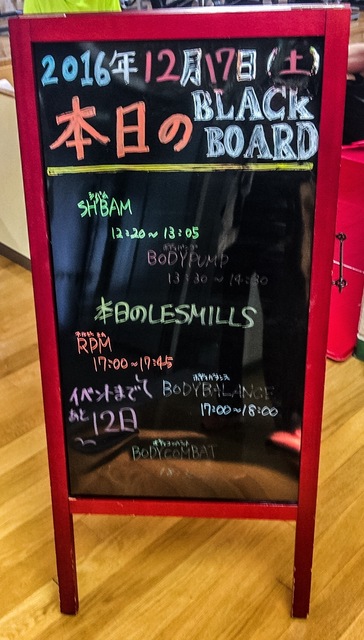 2016年12月17日(土)
本日の BLACK BOARD
シバム
SH'BAM
12:20～13:05
ボディパンプ
BODYPUMP
13:30～14:30
本日のLESMILLS
RPM
17:00～17:45
ボディバランス
BODYBALANCE
17:00～18:00
イベントまで
あと12日
ボディコンバット
BODYCOMBAT